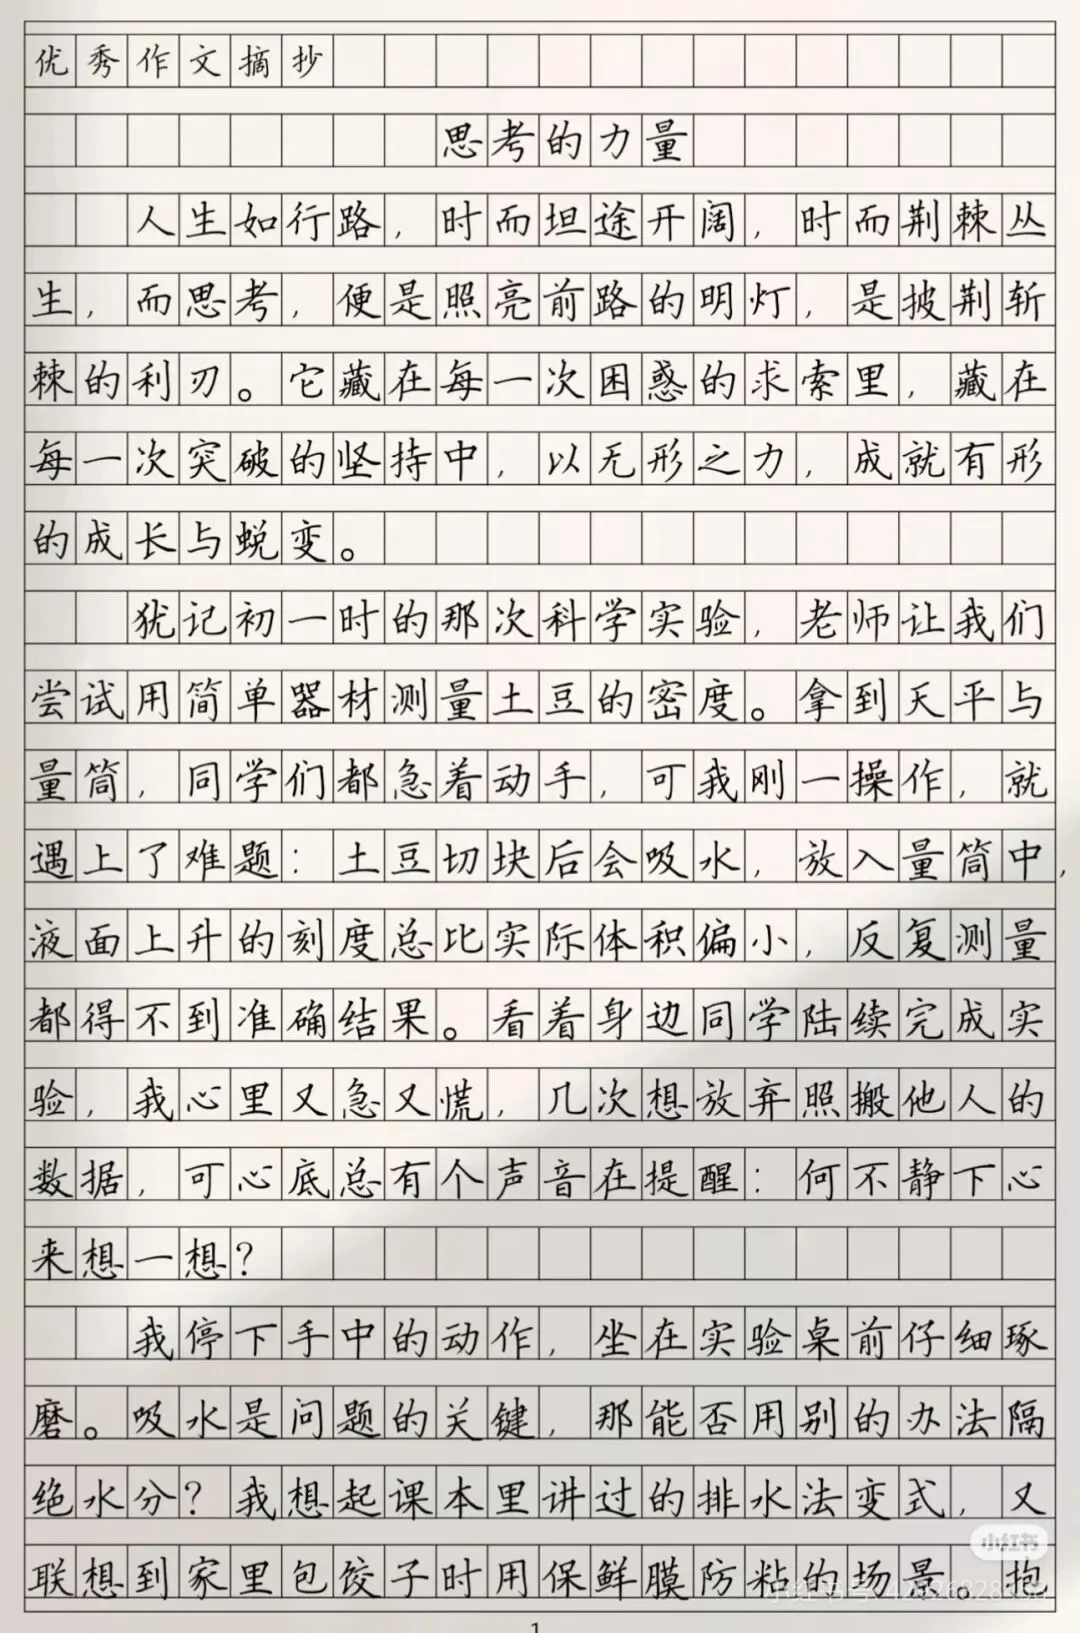 优秀作文摘抄
思考的力量
人生如行路，时而坦途开阔，时而荆棘丛
生，而思考，便是照亮前路的明灯，是披荆斩
棘的利刃。它藏在每一次困惑的求索里，藏在
每一次突破的坚持中，以无形之力，成就有形
的成长与蜕变。
犹记初一时的那次科学实验，老师让我们
尝试用简单器材测量土豆的密度。拿到天平与
量筒，同学们都急着动手，可我刚一操作，就
遇上了难题：土豆切块后会吸水，放入量筒中，
液面上升的刻度总比实际体积偏小，反复测量
都得不到准确结果。看着身边同学陆续完成实
验，我心里又急又慌，几次想放弃照搬他人的
数据，可心底总有个声音在提醒：何不静下心
来想一想？
我停下手中的动作，坐在实验桌前仔细琢
磨。吸水是问题的关键，那能否用别的办法隔
绝水分？我想起课本里讲过的排水法变式，又
小红书
联想到家里包饺子时用保鲜膜防粘的场景。抱
1